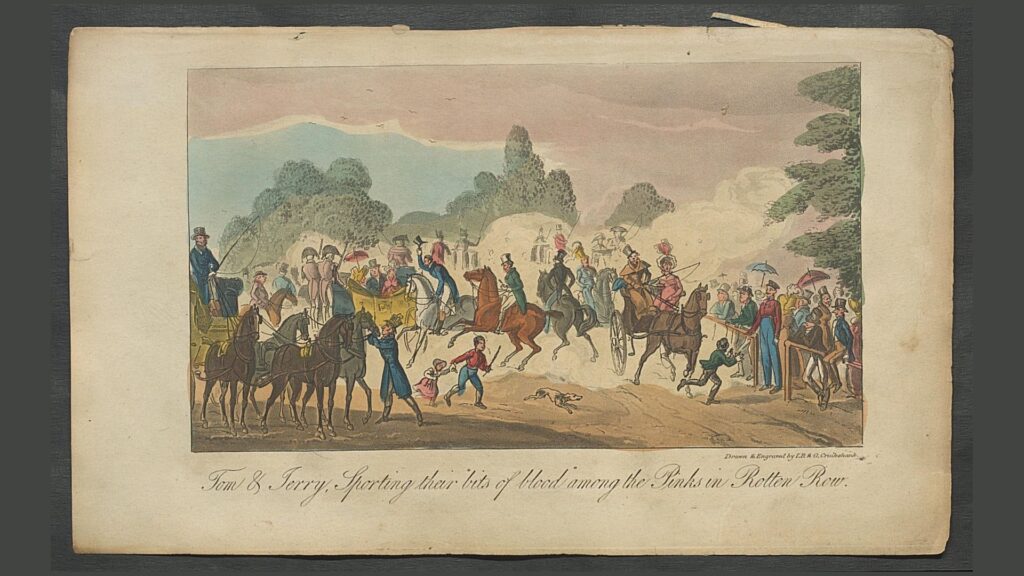 Drawn & Engraved by I.R. & G. Cruikshank.
Tom & Jerry, Sporting their "bits of blood" among the Pinks in Rotten Row.